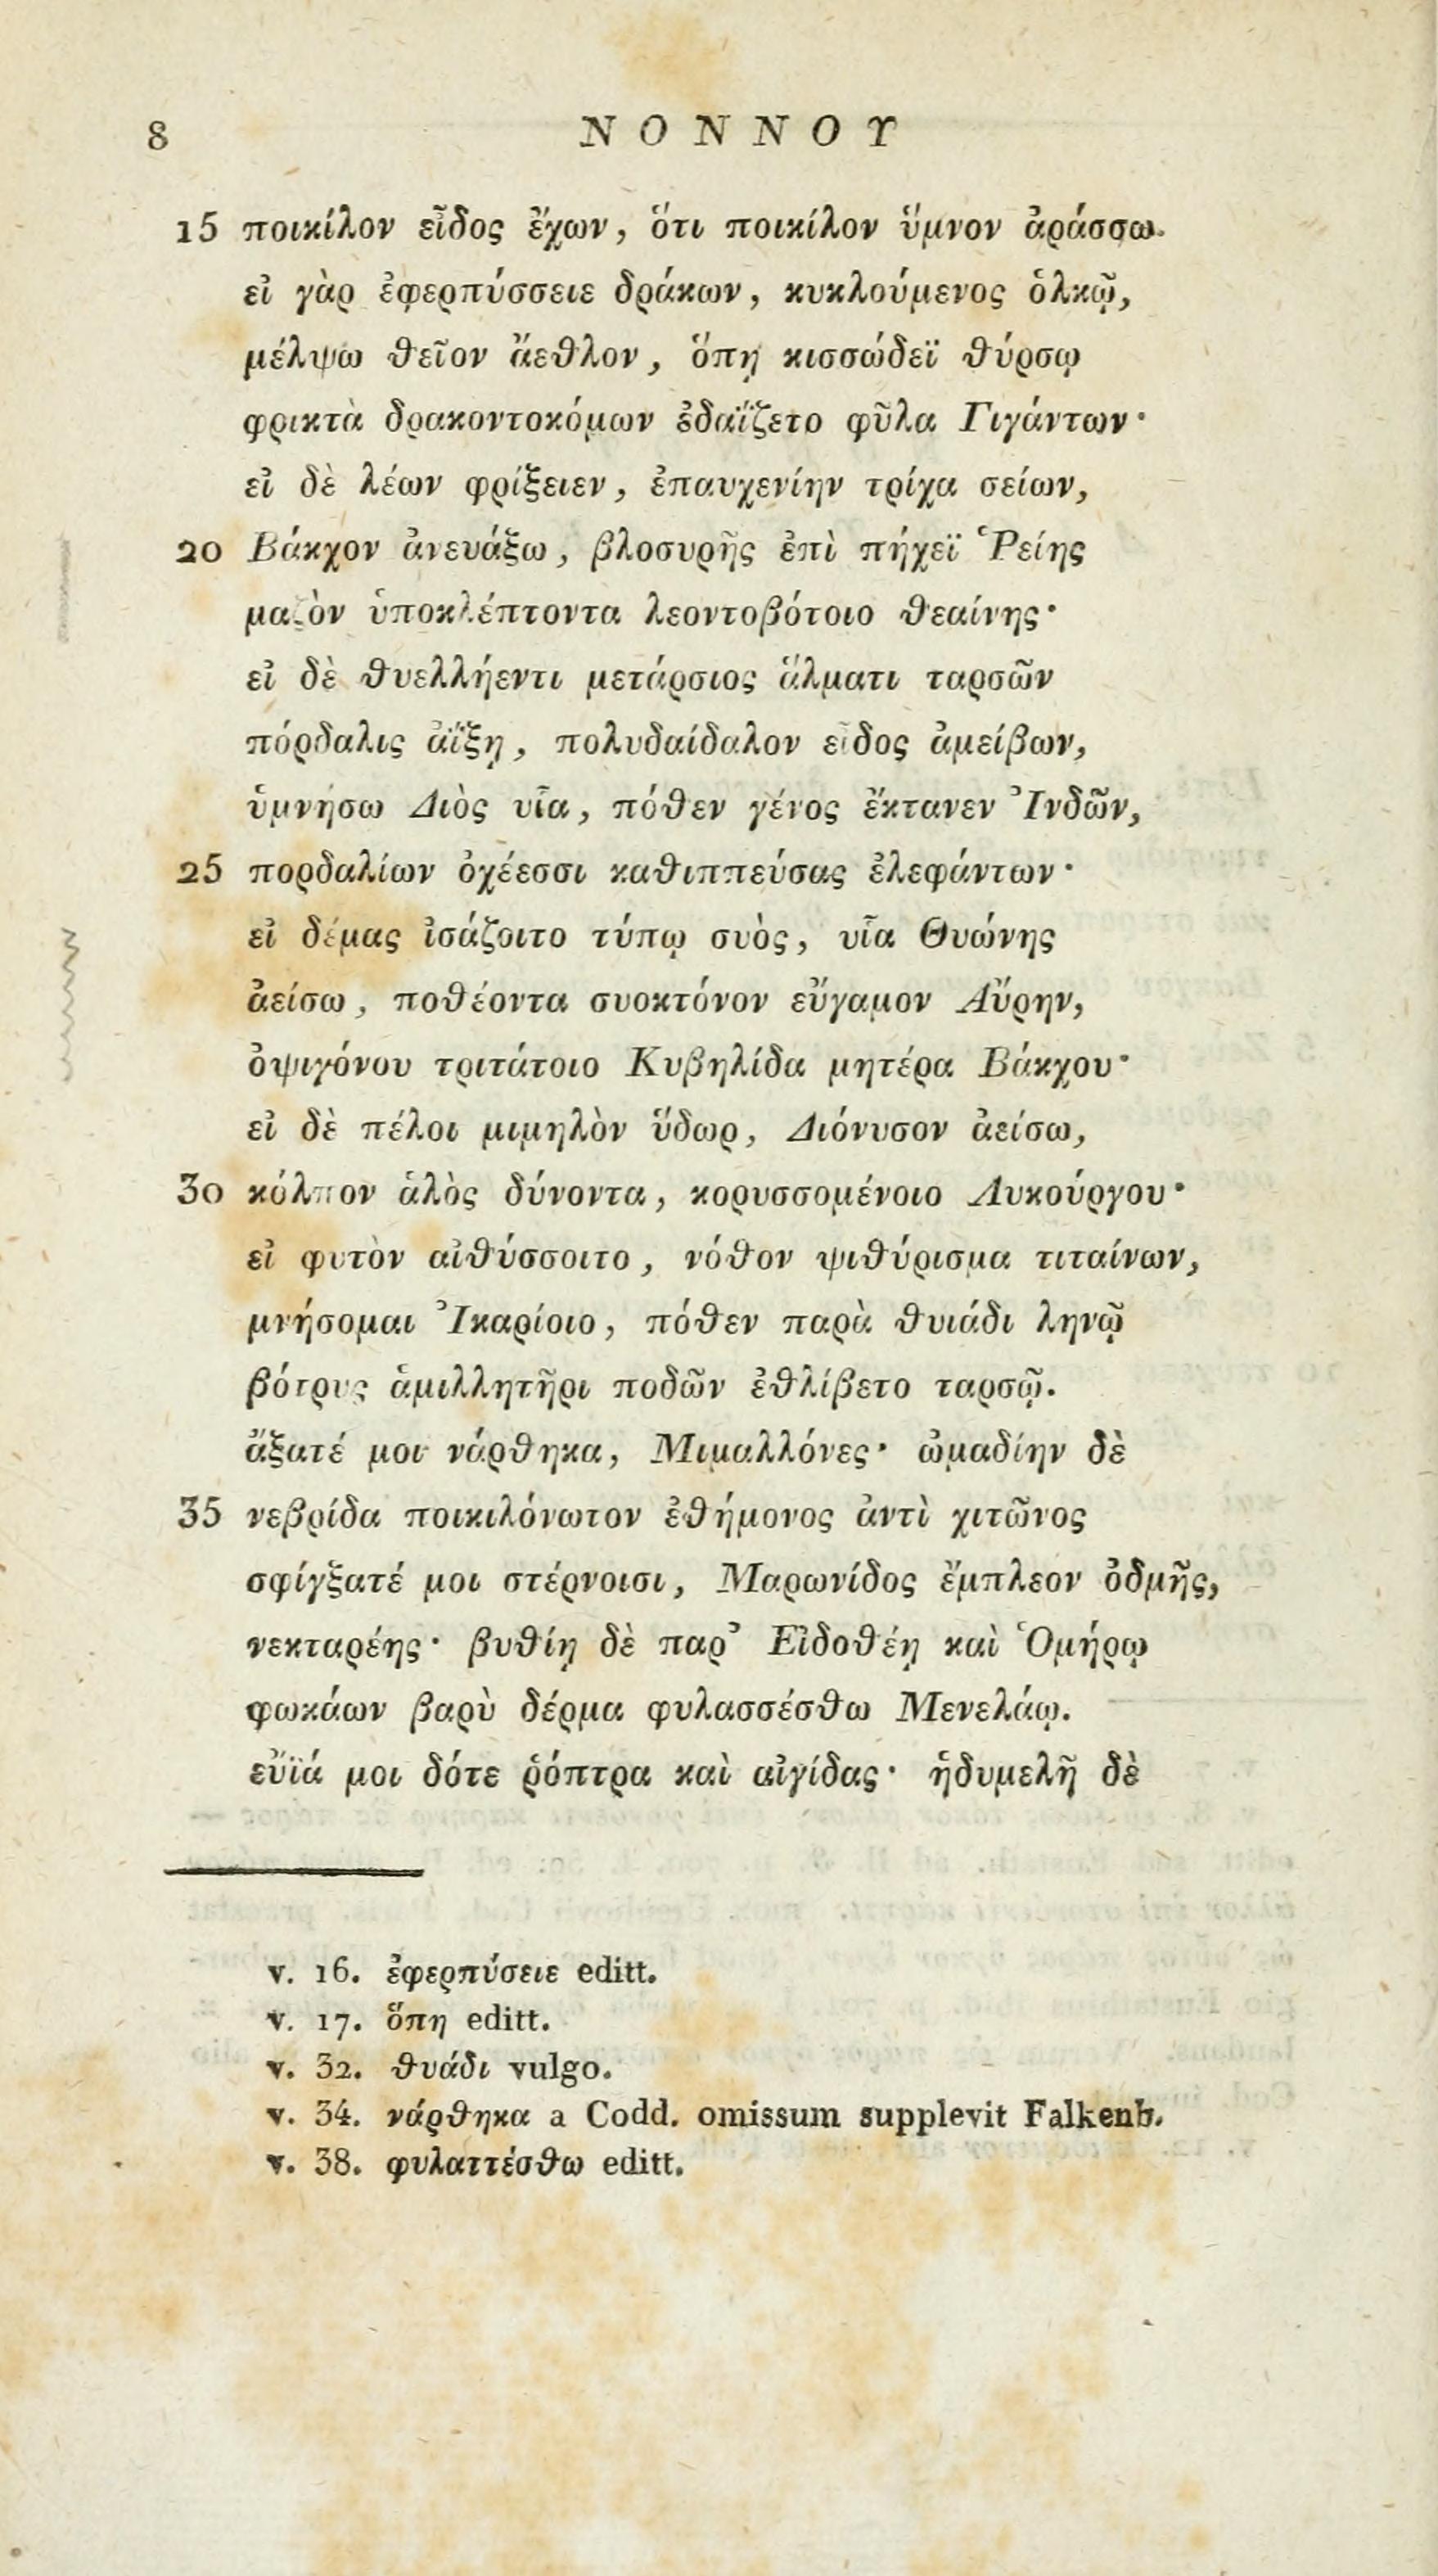 8 ΝΟΝΝΟΥ
15 ποικίλον εἶδος ἔχων, ὅτι ποικίλον ὕμνον ἀράσσω.
εἰ γὰρ ἐφερπύσσειε δράκων, κυκλούμενος ὁλκῷ,
μέλψω θεῖον ἄεθλον, ὅπῃ κισσώδεϊ θύρσῳ
φρικτὰ δρακοντοκόμων ἐδαΐζετο φῦλα Γιγάντων·
εἰ δὲ λέων φρίξειεν, ἐπαυχενίην τρίχα σείων,
20 Βάκχον ἀνευάξω, βλοσυρῆς ἐπὶ πήχεϊ Ῥείης
μαζὸν ὑποκλέπτοντα λεοντοβότοιο θεαίνης·
εἰ δὲ θυελλήεντι μετάρσιος ἅλματι ταρσῶν
πόρδαλις ἀΐξῃ, πολυδαίδαλον εἶδος ἀμείβων,
ὑμνήσω Διὸς υἷα, πόθεν γένος ἔκτανεν Ἰνδῶν,
25 πορδαλίων ὀχέεσσι καθιππεύσας ἐλεφάντων·
εἰ δέμας ἰσάζοιτο τύπῳ συὸς, υἷα Θυώνης
ἀείσω, ποθέοντα συοκτόνον εὔγαμον Αὔρην,
ὀψιγόνου τριτάτοιο Κυβηλίδα μητέρα Βάκχου·
εἰ δὲ πέλοι μιμηλὸν ὕδωρ, Διόνυσον ἀείσω,
30 κόλπον ἁλὸς δύνοντα, κορυσσομένοιο Λυκούργου·
εἰ φυτὸν αἰθύσσοιτο, νόθον ψιθύρισμα τιταίνων,
μνήσομαι Ἰκαρίοιο, πόθεν παρὰ θυιάδι ληνῷ
βότρυς ἁμιλλητῆρι ποδῶν ἐθλίβετο ταρσῷ.
ἄξατέ μοι νάρθηκα, Μιμαλλόνες· ὠμαδίην δὲ
35 νεβρίδα ποικιλόνωτον ἐθήμονος ἀντὶ χιτῶνος
σφίγξατέ μοι στέρνοισι, Μαρωνίδος ἔμπλεον ὀδμῆς,
νεκταρέης· βυθίῃ δὲ παρ' Εἰδοθέῃ καὶ Ὁμήρῳ
φωκάων βαρὺ δέρμα φυλασσέσθω Μενελάῳ.
εὔϊά μοι δότε ῥόπτρα καὶ αἰγίδας· ἡδυμελῆ δὲ
v. 16. ἐφερπύσειε editt.
v. 17. ὅπη editt.
v. 32. θυάδι vulgo.
v. 34. νάρθηκα a Codd. omissum supplevit Falkenb.
v. 38. φυλαττέσθω editt.